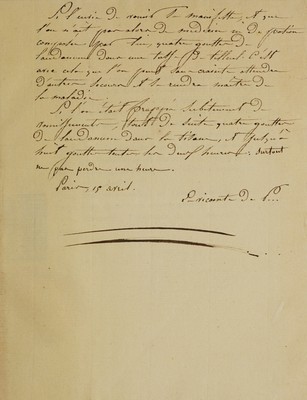 Si l'envie de vomir se manifeste, et que
l'on n'ait pas alors de médecin ni de potion
composée pour lui, quatre gouttes de
laudanum dans une tasse de tilleul. C'est
avec cela que l'on peut sans crainte attendre
d'autres secours et se rendre maître de
la maladie.
Si l'on était frappé subitement de
vomissement, tout de suite quatre gouttes
de laudanum dans la tisane, et jusqu'à
huit gouttes toutes les deux heures. surtout
ne pas perdre une heure.
Paris, 15 avril.
Le vicomte de P...